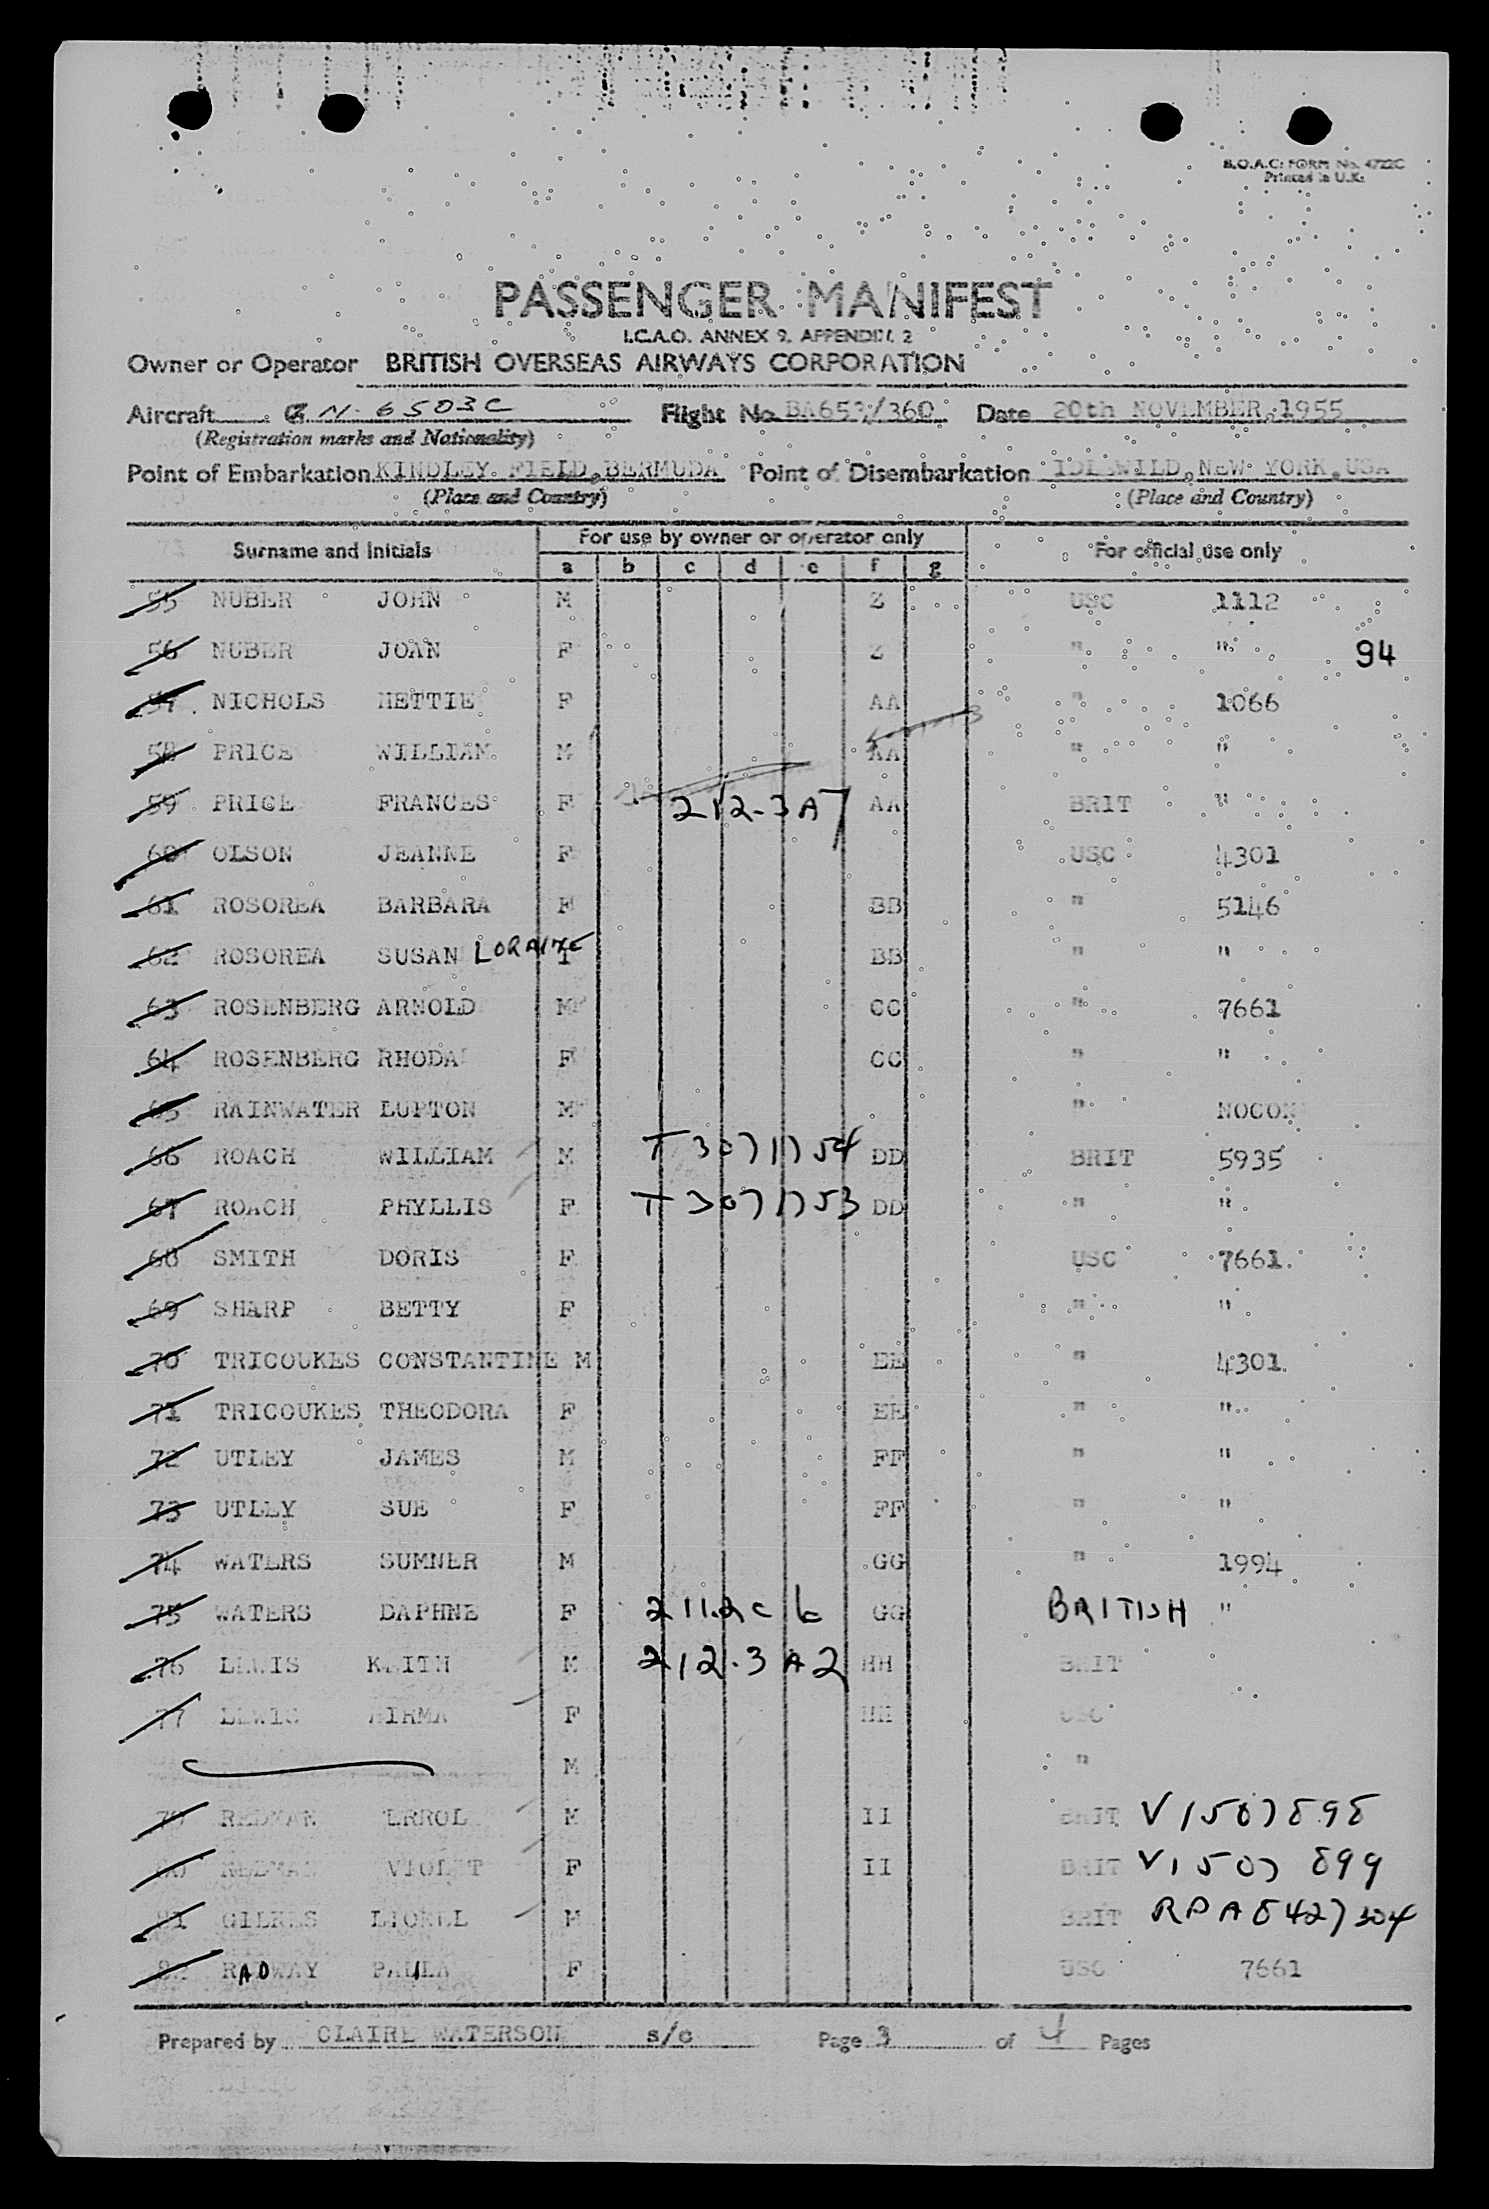 B.O.A.C. FORM No. 4722C
Printed in U.K.
PASSENGER MANIFEST
I.C.A.O. ANNEX 9, APPENDIX 2
Owner or Operator BRITISH OVERSEAS AIRWAYS CORPORATION
Aircraft N 6503C Flight No. BA657/360 Date 20th NOVEMBER, 1955
(Registration marks and Nationality)
Point of Embarkation KINDLEY FIELD, BERMUDA Point of Disembarkation IDLEWILD, NEW YORK, USA
(Place and Country) (Place and Country)
Surname and Initials For use by owner or operator only For official use only
a b c d e f g
55 NUBER JOHN M Z USC 1112
56 NUBER JOAN F Z " " 94
57 NICHOLS METTIE F AA " 1066
58 PRICE WILLIAM M AA " "
59 PRICE FRANCES F 212.3A7 AA BRIT "
60 OLSON JEANNE F USC 4301
61 ROSOREA BARBARA F BB " 5146
62 ROSOREA SUSAN LORAINE F BB " "
63 ROSENBERG ARNOLD M CC " 7661
64 ROSENBERG RHODA F CC " "
65 RAINWATER LUPTON M " NOCON
66 ROACH WILLIAM M T3071754 DD BRIT 5935
67 ROACH PHYLLIS F T3071753 DD " "
68 SMITH DORIS F USC 7661
69 SHARP BETTY F " "
70 TRICOUKES CONSTANTINE M EE " 4301
71 TRICOUKES THEODORA F EE " "
72 UTLEY JAMES M FF " "
73 UTLEY SUE F FF " "
74 WATERS SUMNER M GG " 1994
75 WATERS DAPHNE F 211.2c GG BRITISH "
76 LEWIS KEITH M 212.3A2 HH BRIT
77 LEWIS F HH USC
M "
79 REDMAN ERROL M II BRIT V1507898
80 REDMAN VIOLET F II BRIT V1507899
81 GILKES LIONEL M BRIT RPA8427304
82 RADWAY PAULA F USC 7661
Prepared by CLAIRE WATERSON s/c Page 3 of 4 Pages